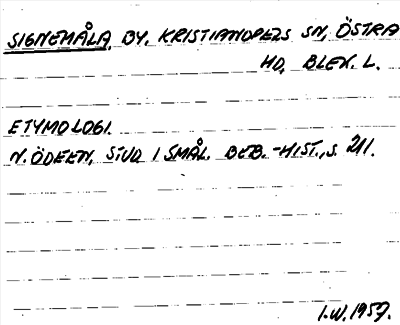 SIGNEMÅLA, BY, KRISTIANOPELS SN, ÖSTRA
HD, BLEK. L.
ETYMOLOGI.
N. ÖDEEN, STUD I SMÅL. BEB.-HIST., S. 211.
I.W. 1957.